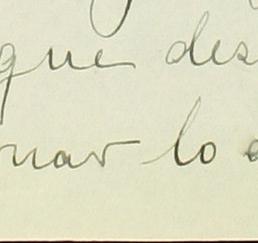 que des
nar lo